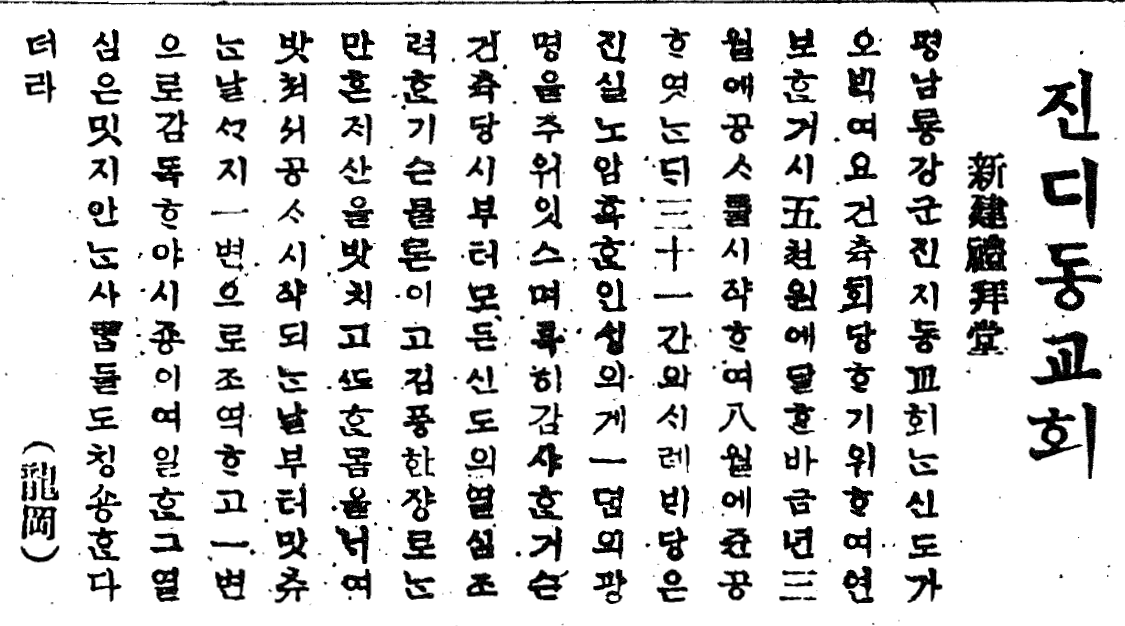 진디동교회
新建禮拜堂
평남룡강군진지동교회ᄂᆞᆫ신도가
오ᄇᆡᆨ여요건축회당ᄒᆞ기위ᄒᆞ여연
보ᄒᆞᆫ거시五쳔원에달ᄒᆞᆫ바금년三
월에공ᄉᆞ를시쟉ᄒᆞ여八월에쥰공
ᄒᆞ엿ᄂᆞᆫᄃᆡ三十一간와서레ᄇᆡ당은
진실노암흑ᄒᆞᆫ인셩의게一뎜의광
명을주위잇스며특히감샤ᄒᆞᆫ거슨
건축당시부터모든신도의열심조
력ᄒᆞᆫ기슨물론이고김풍한쟝로ᄂᆞᆫ
만흔저산을밧치고ᄯᅩᄒᆞᆫ몸을니여
밧최쇠공ᄉᆞ시쟉되ᄂᆞᆫ날부터맛츄
ᄂᆞᆫ날ᄭᆞ지一변으로조역ᄒᆞ고一변
으로감독ᄒᆞ야시죵이여일ᄒᆞᆫ그열
심은밋지안ᄂᆞᆫ사ᄅᆞᆷ들도칭송ᄒᆞᆫ다
더라
(龍岡)